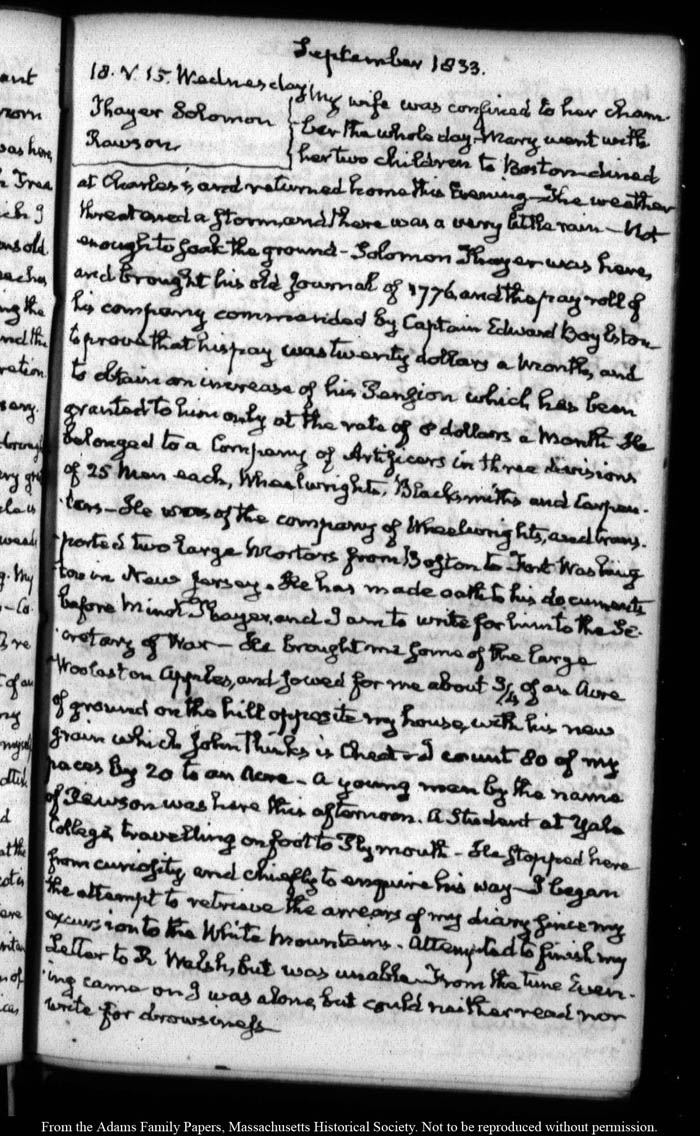 September 1833.
18. V. 15. Wednesday. My wife was confined to her cham-
Thayer Solomon ber the whole day. Mary went with
Rawson. her two children to Boston dined
at Charles's, and returned home this Evening. The weather
threatened a storm, and there was a very little rain — Not
enough to soak the ground — Solomon Thayer was here,
and brought his old Journal of 1776, and the pay roll of
his company commanded by Captain Edward Boylston
to prove that his pay was twenty dollars a Month, and
to obtain an increase of his Pension which has been
granted to him only at the rate of 8 dollars a Month. He
belonged to a Company of Artificers in three divisions
of 25 Men each, Wheelwrights, Blacksmiths and Carpen-
ters — He was of the company of Wheelwrights, and trans-
ported two large Mortars from Boston to Fort Washing
ton in New Jersey. He has made oath to his documents
before Minot Thayer, and I am to write for him to the Se-
cretary of War — He brought me some of the large
Woolaston Apples, and sowed for me about 3/4 of an Acre
of ground on the hill opposite my house, with his new
grain which John thinks is Cheat. I count 80 of my
paces by 20 to an Acre — A young man by the name
of Rawson was here this afternoon. A Student at Yale
College, travelling on foot to Plymouth — He stopped here
from curiosity, and chiefly to enquire his way — I began
the attempt to retrieve the arrears of my diary since my
excursion to the White Mountains. Attempted to finish my
Letter to R. Walsh, but was unable. From the time Even-
ing came on I was alone, but could neither read nor
write for drowsiness
From the Adams Family Papers, Massachusetts Historical Society. Not to be reproduced without permission.